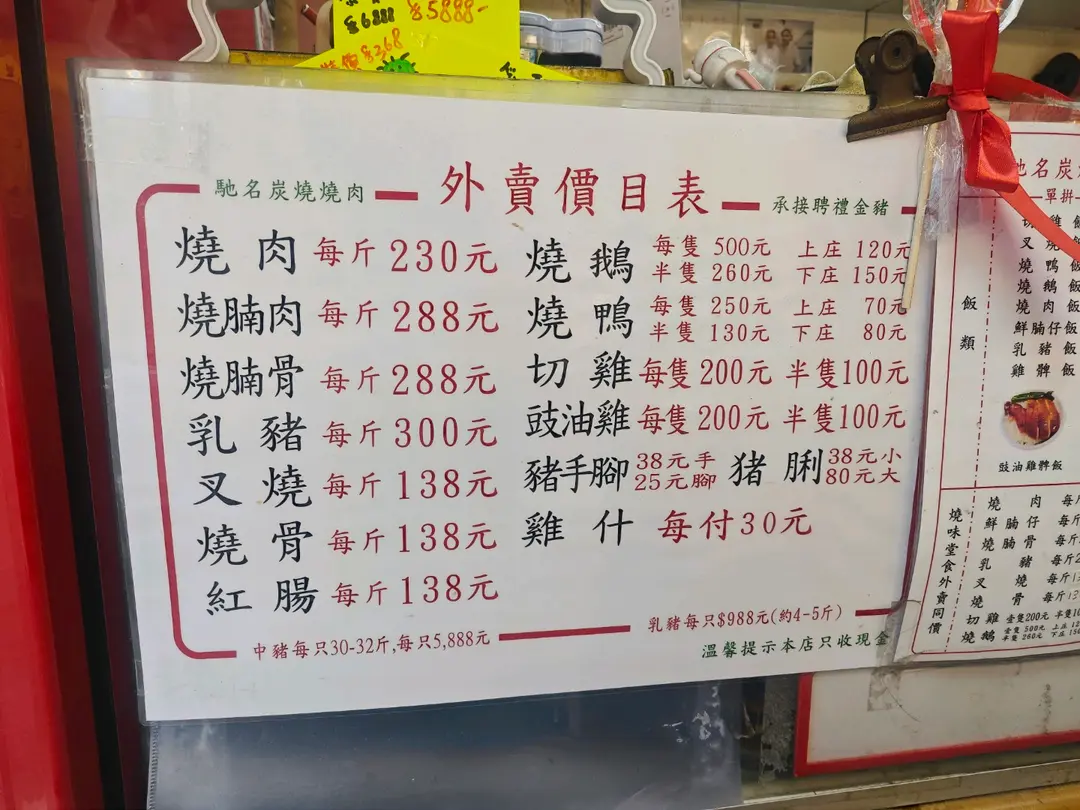 $6888
$5888-
特價$368
馳名炭燒燒肉
外賣價目表
承接聘禮金豬
燒肉 每斤230元
燒腩肉 每斤288元
燒腩骨 每斤288元
乳豬 每斤300元
叉燒 每斤138元
燒骨 每斤138元
紅腸 每斤138元
燒鵝 每隻500元 上庄120元
半隻260元 下庄150元
燒鴨 每隻250元 上庄70元
半隻130元 下庄80元
切雞 每隻200元 半隻100元
豉油雞 每隻200元 半隻100元
豬手腳 38元手 25元腳 猪脷 38元小 80元大
雞什 每付30元
中豬每只30-32斤,每只5,888元
乳豬每只$988元(約4-5斤)
溫馨提示本店只收現金
馳名炭燒
單拼
飯類
切雞飯
叉燒飯
燒鴨飯
燒鵝飯
燒肉飯
鮮腩仔飯
乳豬飯
雞髀飯
豉油雞髀飯
燒味堂食外賣同價
燒肉 每斤
鮮腩仔 每斤
燒腩骨 每斤
乳豬 每斤
叉燒 每斤
燒骨 每斤
切雞 壹隻200元 半隻
燒鵝 壹隻500元 上庄
半隻260元 下庄